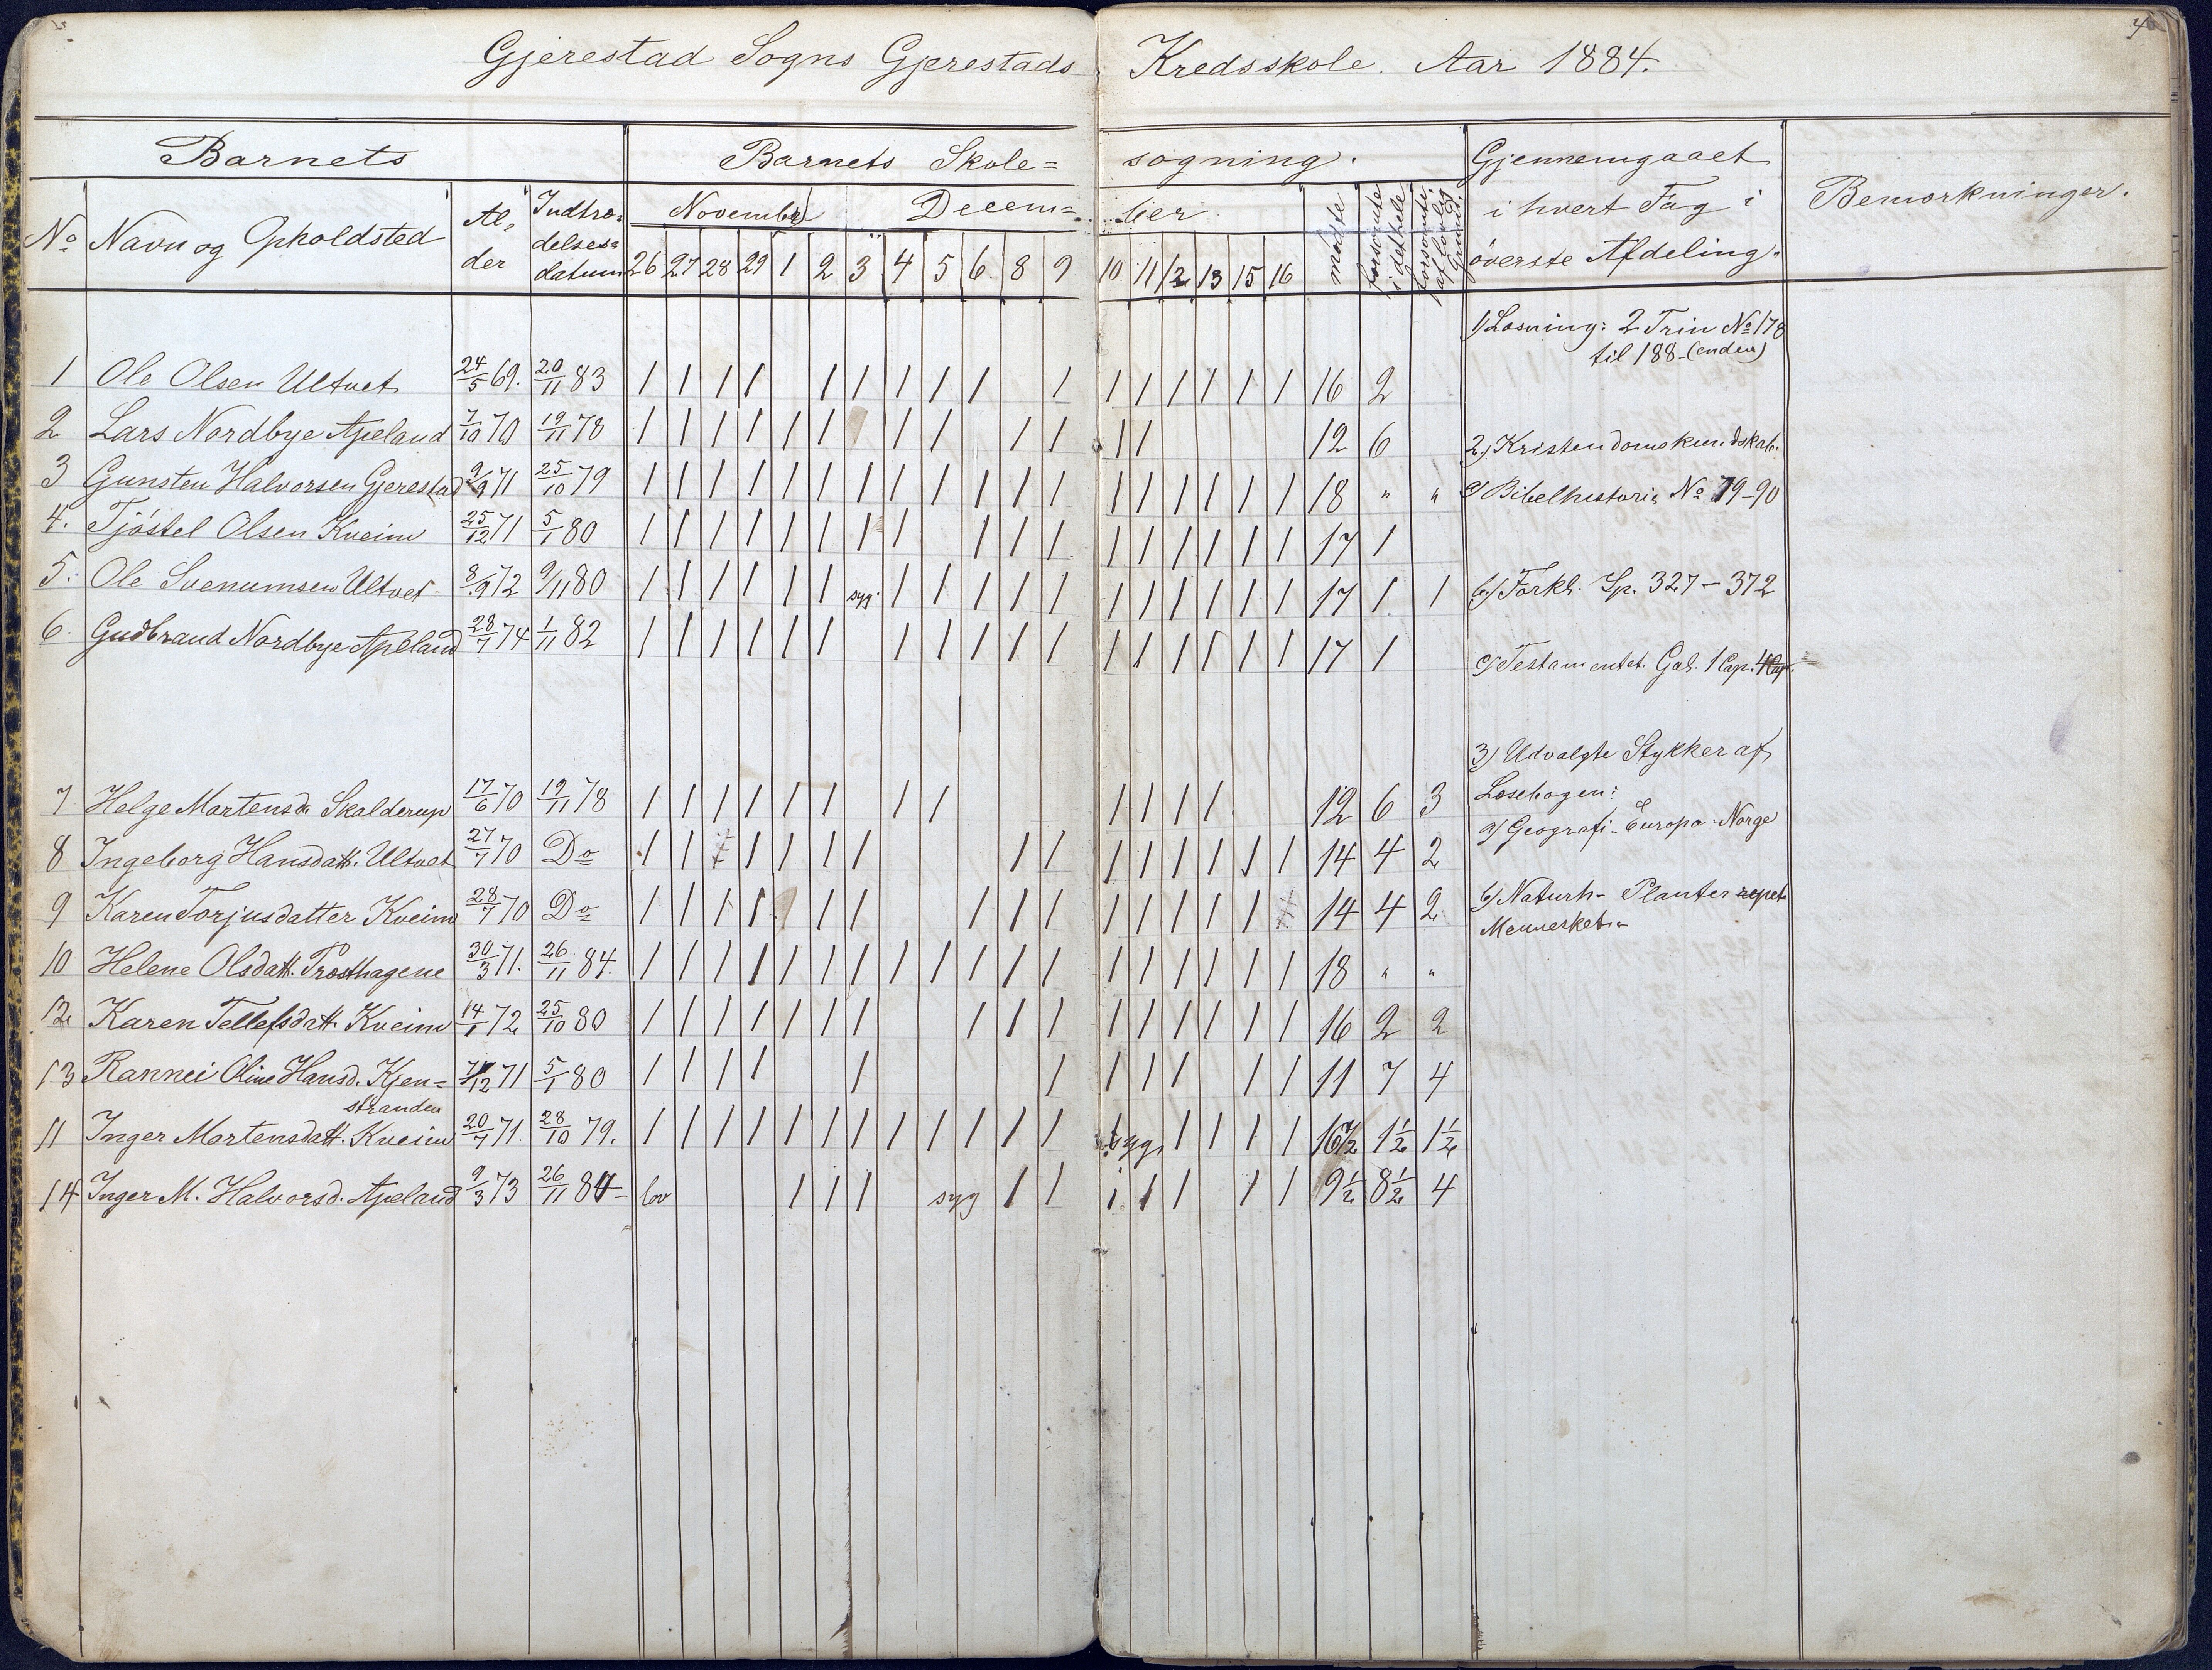 4
Gjerestad Sogns Gjerestads Kredsskole. Aar 1884.
Barnets Barnets Skole= søgning. Gjennemgaaet i hvert Fag i øverste Afdeling. Bemærkninger.
No Navn og Opholdsted Al,der Indtræ-delses=datum November Decem= ber mødte forsømte i det hele forsømte af lovlig Grund.
26 27 28 29 1 2 3 4 5 6. 8 9 10 11 12 13 15 16
1) Læsning: 2 Trin No 178
til 188 - (enden)
1 Ole Olsen Ultvet 24/5 69. 20/11 83 | | | | | | | | | | | | | | | | 16 2
2 Lars Nordbye Apeland 7/10 70 19/11 78 | | | | | | | | | | | | 12 6
2) Kristendomskundskab.
3 Gunsten Halvorsen Gjerestad 9/9 71 25/10 79 | | | | | | | | | | | | | | | | | | 18 " "
a) Bibelhistorie No 79-90
4. Tjöstel Olsen Kveim 25/12 71 5/1 80 | | | | | | | | | | | | | | | | | 17 1
5. Ole Svenumsen Ultvet 8/9 72 9/11 80 | | | | | | syg. | | | | | | | | | | | 17 1 1
b) Forkl. Sp. 327 - 372
6. Gudbrand Nordbye Apeland 28/7 74 1/11 82 | | | | | | | | | | | | | | | | | 17 1
c) Testamentet. Gal. 1 Cap. 4 Cap.
3) Udvalgte Stykker af
Læsebogen:
7 Helge Martensd. Skalderup 17/6 70 19/11 78 | | | | | | | | | | | | 12 6 3
a) Geografi - Europa - Norge
8 Ingeborg Hansdatt. Ultvet 27/7 70 Do | | | | | | | | | | | | | | 14 4 2
9 Karen Torjusdatter Kveim 28/7 70 Do | | | | | | | | | | | | | | 14 4 2
b) Naturh- Planter repet.
Mennesket.
10 Helene Olsdatt. Præsthagene 30/3 71. 26/11 84. | | | | | | | | | | | | | | | | | | 18 " "
12 Karen Tellefsdatt. Kveim 14/1 72 25/10 80 | | | | | | | | | | | | | | | | 16 2 2
13 Rannei Oline Hansd. Kjen= 12 71 5/1 80 | | | | | | | | | | | 11 7 4
stranden
11 Inger Martensdatt. Kveim 20/7 71. 28/10 79. | | | | | | | | | | | | syg | | | | 16 1/2 1 1/2 1 1/2
14 Inger M. Halvorsd. Apeland 9/3 73 26/11 84 - lov | | | syg | | | | | | | 9 1/2 8 1/2 4